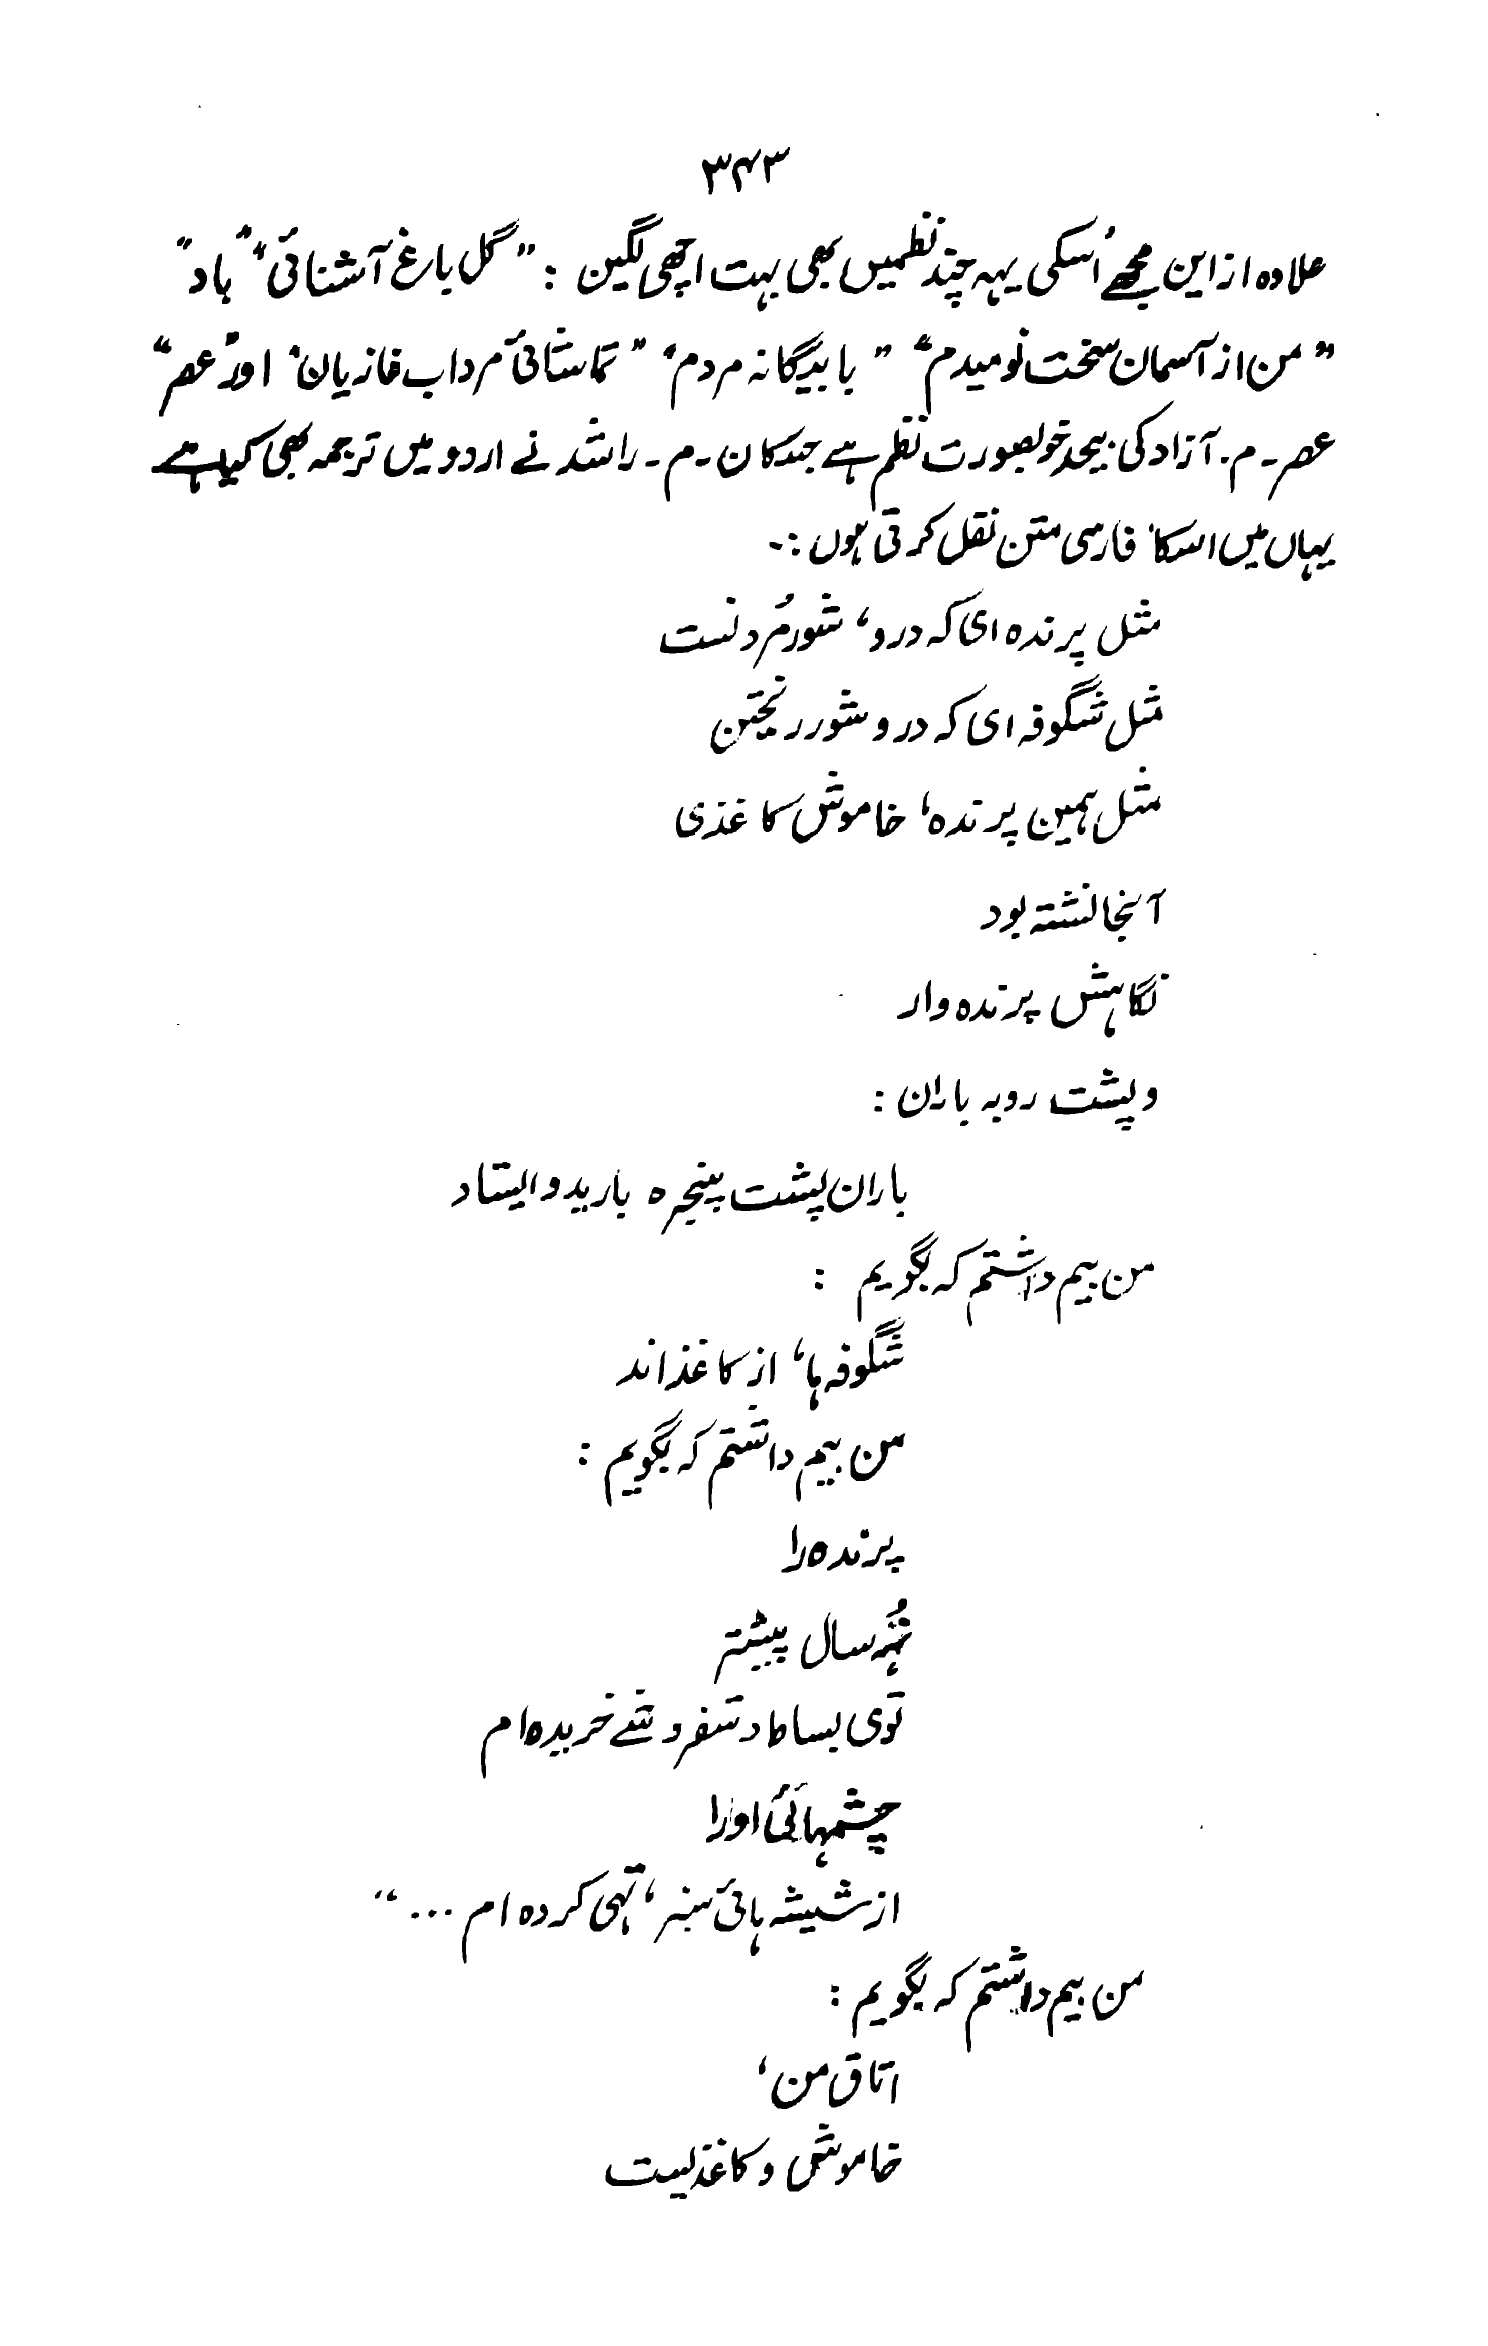 ۳۴۳
علاوہ از این مجھے اُسکی یہہ چند نظمیں بھی بہت اچھی لگیں : "گل باغ آشنائی" "باد"
"من از آسمان سخت نومیدم" "با بیگانہ مردم" "تماشائیٔ مرداب غازیان" اور "عصر"
عصر۔م۔آزاد کی بیحد خوبصورت نظم ہے جسکا ن۔م۔راشد نے اردو میں ترجمہ بھی کیا ہے
یہاں میں اسکا فارسی متن نقل کرتی ہوں :-
مثل پرندہ ای کہ درو، شور مُردنست
مثل شگوفہ ای کہ درو شور ریختن
مثل ہمین پرندہ، خاموش کاغذی
آنجا نشتہ بود
نگاہش پرندہ وار
و پشت روبہ باران :
باران پشت پنجرہ بارید و ایستاد
من بیم داشتم کہ بگویم :
شگوفہ ہا، از کاغذ اند
من بیم داشتم کہ بگویم :
پرندہ را
نُہ سال پیشتر
توی بساط دستفروشے خریدہ ام
چشمہائیٔ اورا
از شیشہ ہائیٔ سبز، تہی کردہ ام ..."
من بیم داشتم کہ بگویم :
اتاق من،
خاموش و کاغذیست